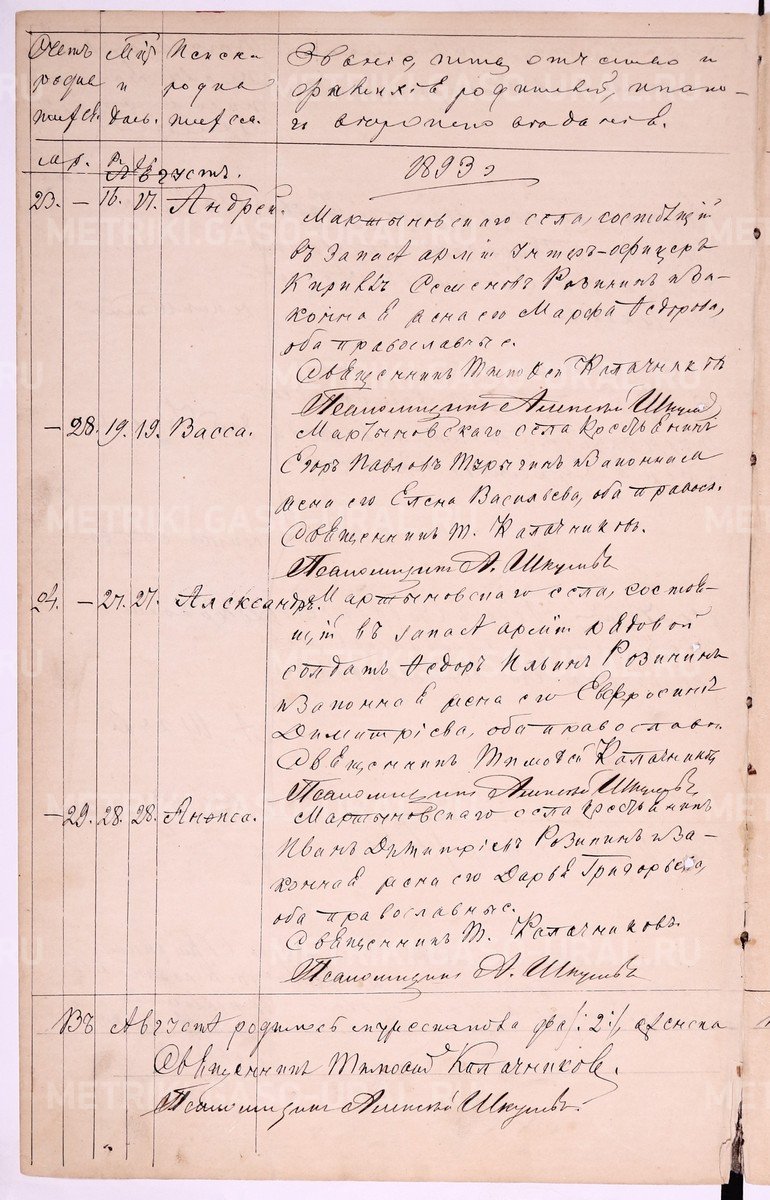 Счетъ родив шихся. Мѣс и день. Имена родив шихся.
Званіе, имя, отчество и
фамилія родителей, и како-
го вѣроисповѣданія.
м. р. ж.
Августъ. 1893 г
23. — 16. 17. Андрей. Мартыновскаго села, состоящій
въ запасѣ арміи Унтеръ-офицеръ
Кириллъ Семеновъ Розининъ и за-
конная жена его Марѳа Ѳедорова,
оба православные.
Священникъ Тимоѳей Калачниковъ
Псаломщикъ Алексѣй
— 28. 19. 19. Васса. Мартыновскаго села крестьянинъ
Егоръ Павловъ и законная
жена его Елена Васильева, оба правосл.
Священникъ Т. Калачниковъ.
Псаломщикъ А.
24. — 27. 27. Александръ. Мартыновскаго села, состоя-
щій въ запасѣ арміи рядовой
солдатъ Ѳедоръ Ильинъ Розининъ
и законная жена его Евфросинія
Димитріева, оба православн.
Священникъ Тимоѳей Калачниковъ
Псаломщикъ Алексѣй
— 29. 28. 28. Анѳиса. Мартыновскаго села крестьянинъ
Иванъ Димитріевъ Розининъ и за-
конная жена его Дарья Григорьева,
оба православные.
Священникъ Т. Калачниковъ.
Псаломщикъ А.
Въ Августѣ родилось мужескаго 2
Священникъ Тимоѳей Калачниковъ.
Псаломщикъ Алексѣй